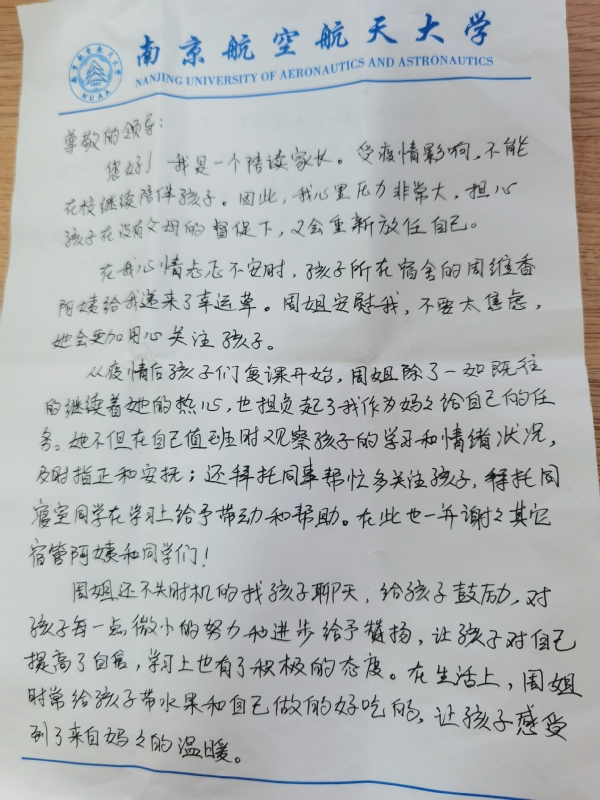 南京航空航天大学
NANJING UNIVERSITY OF AERONAUTICS AND ASTRONAUTICS
NUAA
尊敬的领导:
您好!我是一个陪读家长。受疫情影响,不能
在校继续陪伴孩子。因此,我心里压力非常大,担心
孩子在没有父母的督促下,又会重新放任自己。
在我心情忐忑不安时,孩子所在宿舍的周维香
阿姨给我送来了幸运草。周姐安慰我,不要太焦虑,
她会更加用心关注孩子。
从疫情后孩子们复课开始,周姐除了一如既往
的继续着她的热心,也担负起了我作为妈々给自己的任
务。她不但在自己值班时观察孩子的学习和情绪状况,
及时指正和安抚;还拜托同事帮忙多关注孩子,拜托同
寝室同学在学习上给予带动和帮助。在此也一并谢々其它
宿管阿姨和同学们!
周姐还不失时机的找孩子聊天,给孩子鼓励,对
孩子每一点微小的努力和进步给予赞扬,让孩子对自己
提高了自信,学习上也有了积极的态度。在生活上,周姐
时常给孩子带水果和自己做的好吃的,让孩子感受
到了来自妈々的温暖。